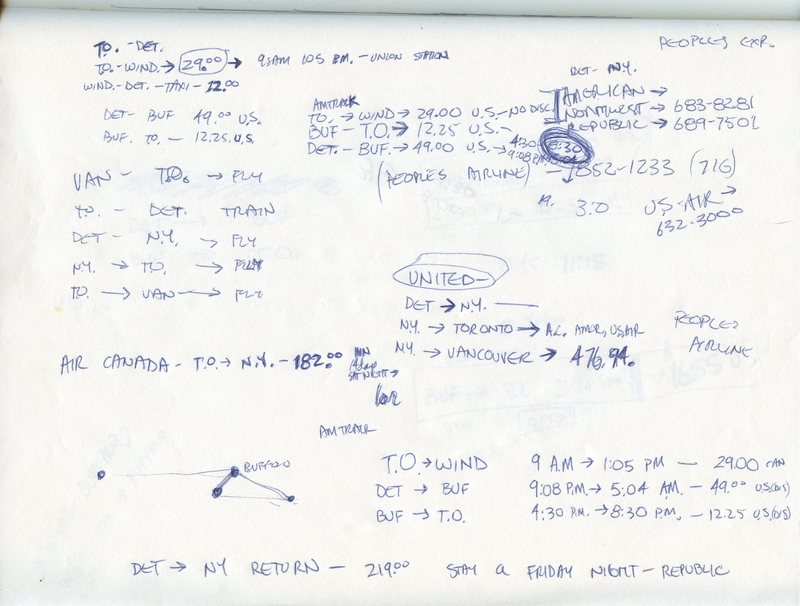 PEOPLES EXP.
TO. - DET.
TO. - WIND. → 29.00 → 9:AM 1:05 P.M. - UNION STATION
WIND. - DET. - TAXI - 12.00
DET - BUF 49.00 U.S.
BUF. TO. - 12.25 U.S.
DET - N.Y.
AMERICAN →
NORTHWEST → 683-8281
REPUBLIC → 689-7502
AMTRACK
TO. → WIND → 29.00 U.S. - NO DISC.
BUF - T.O. → 12.25 U.S. -
DET. - BUF. → 49.00 U.S. → 4:30 8:30
9:08 P.M. 5:04
(PEOPLES AIRLINE) - 1852-1233 (716)
19. 3.0 U.S. AIR →
632-3000
VAN - T.O. → FLY
TO. - DET. TRAIN
DET - N.Y. → FLY
N.Y. → TO. → FLY
TO. → VAN → FLY
UNITED -
DET → N.Y. —
N.Y. → TORONTO → A.C. AMER, USAIR
N.Y. → VANCOUVER → 476.94.
PEOPLES
AIRLINE
AIR CANADA - T.O. → N.Y. - 182.00 MIN
SAT NIGHT →
AMTRACK
BUFFALO
T.O. → WIND 9 AM → 1:05 PM - 29.00 CAN
DET → BUF 9:08 P.M. → 5:04 A.M. - 49.00 U.S.
BUF → T.O. 4:30 P.M. → 8:30 P.M. - 12.25 U.S.
DET → NY RETURN - 219.00 STAY a FRIDAY NIGHT - REPUBLIC